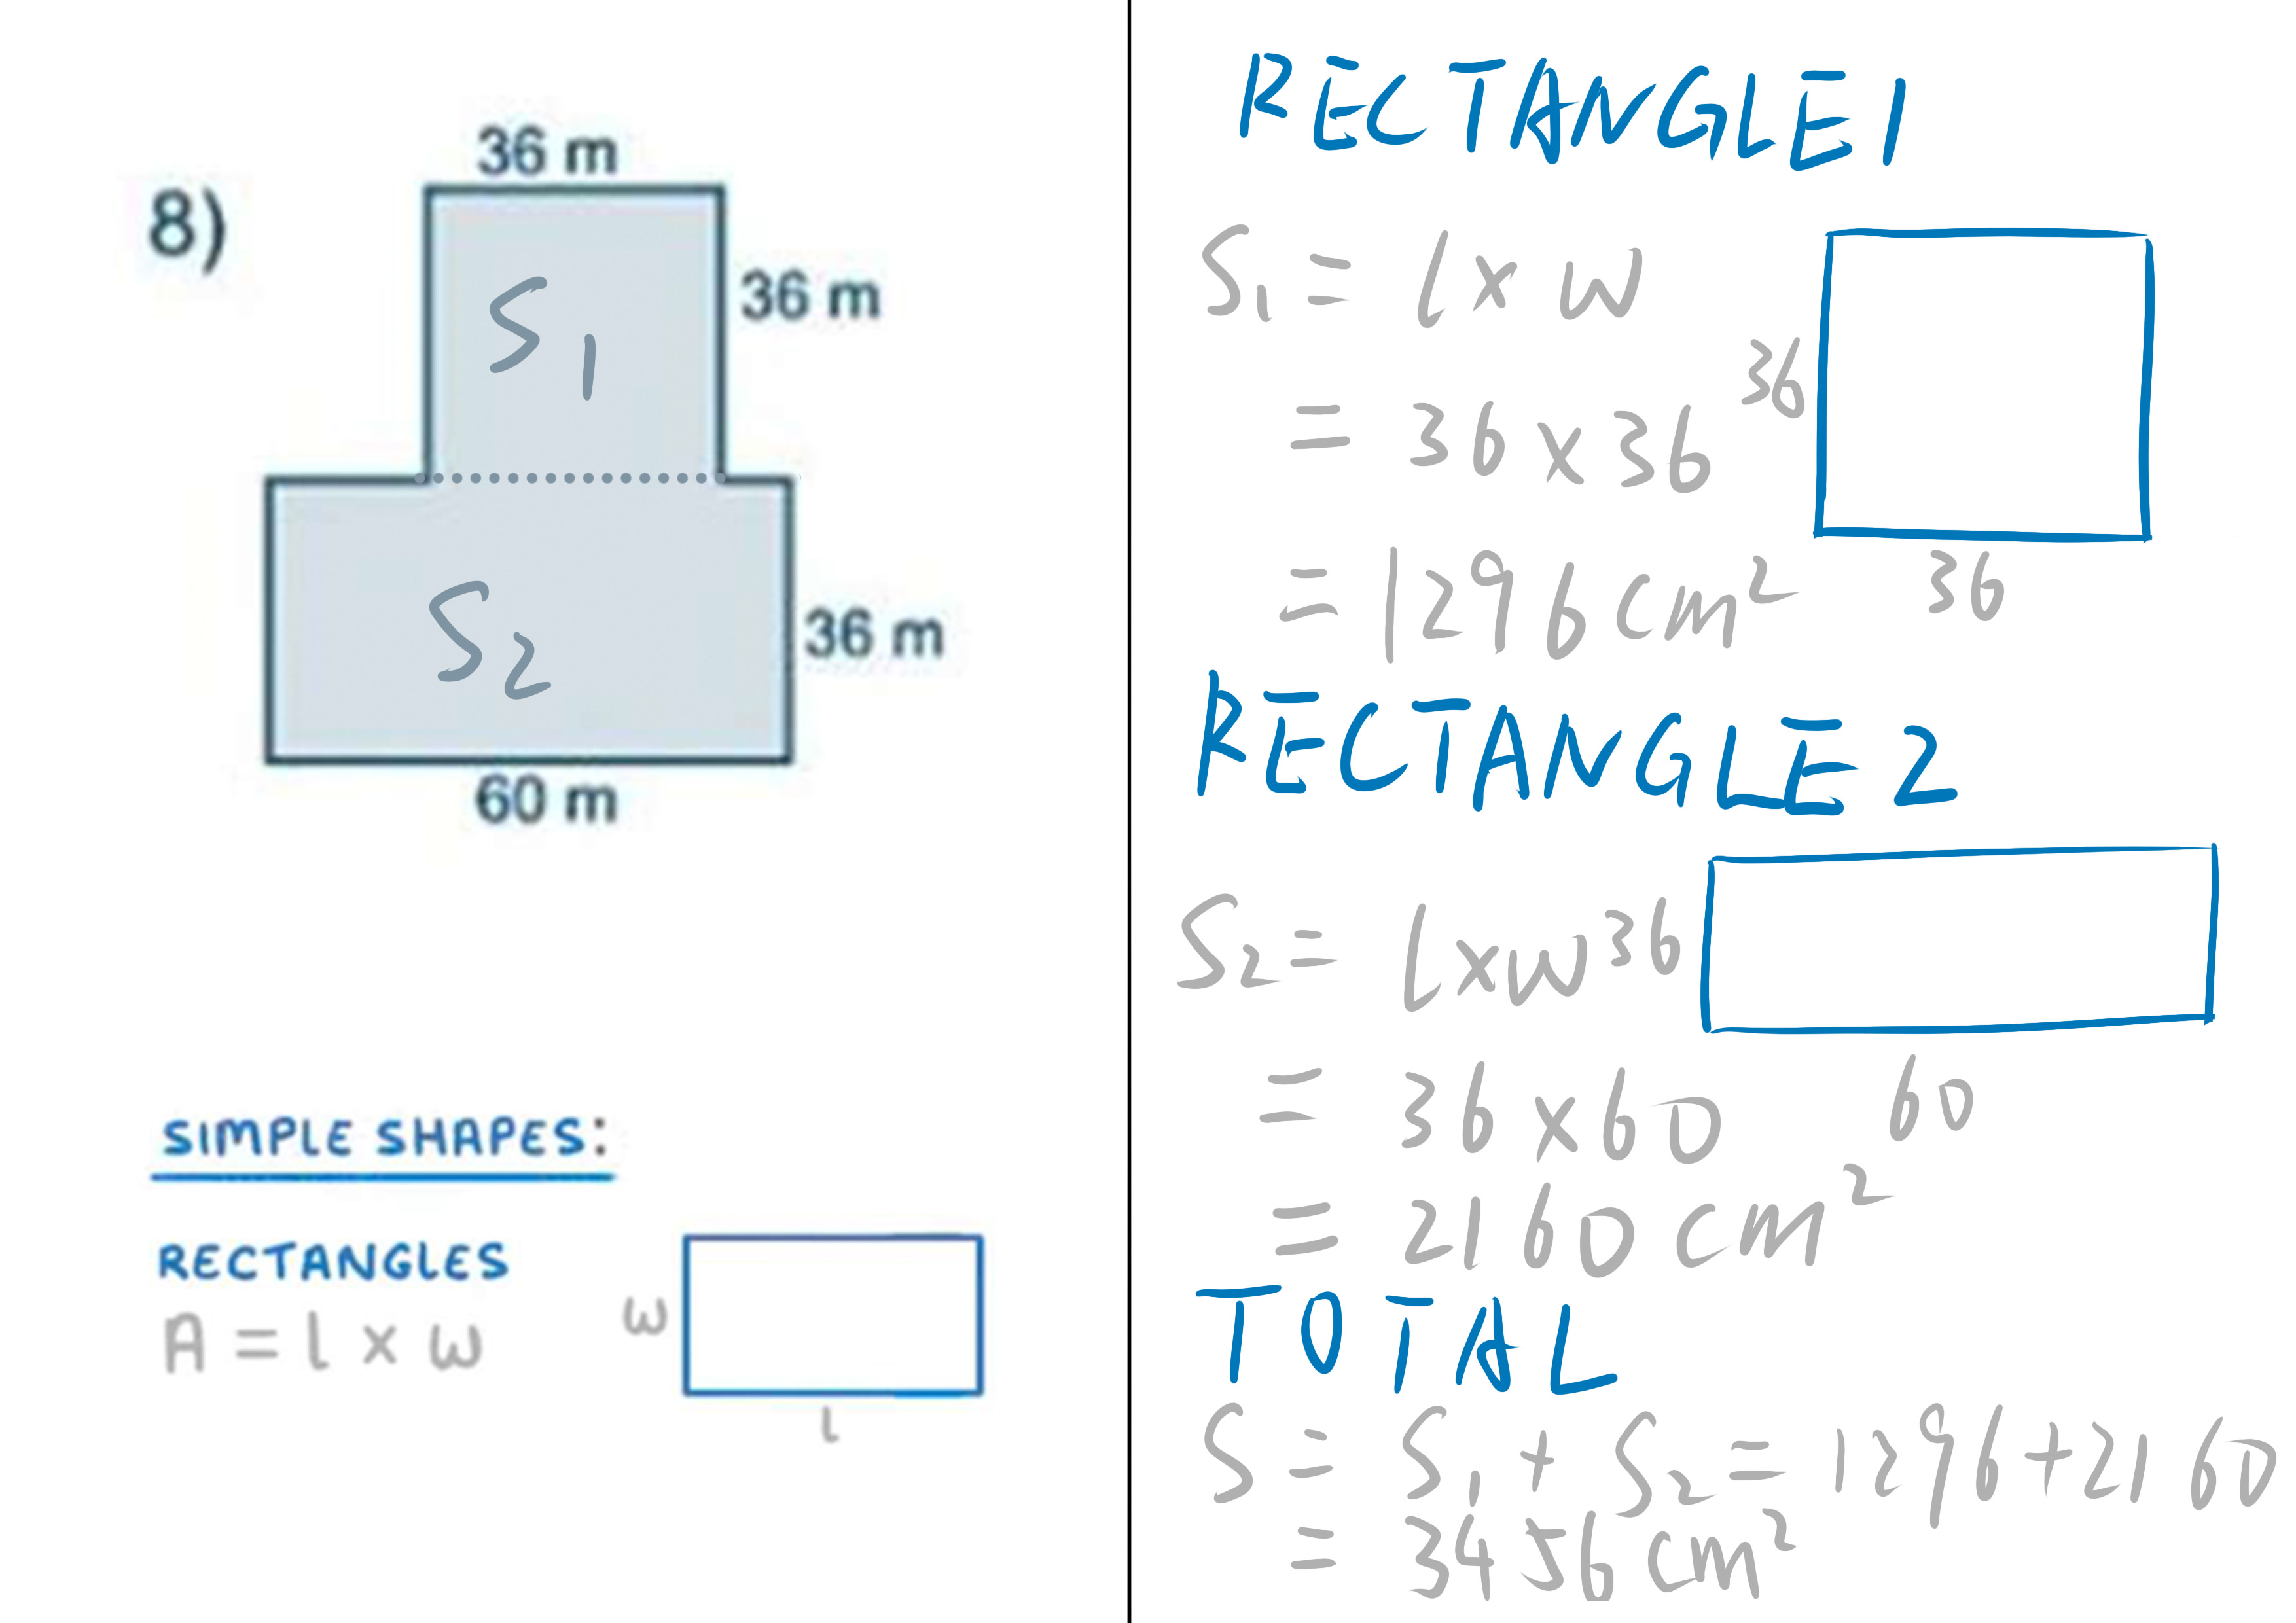 36 m
8)
S₁
36 m
S₂
36 m
60 m
SIMPLE SHAPES:
RECTANGLES
A = l × w
w
l
RECTANGLE 1
S₁ = l × w
36
= 36 × 36
= 1296 cm²
36
RECTANGLE 2
S₂ = l × w
36
= 36 × 60
60
= 2160 cm²
TOTAL
S = S₁ + S₂ = 1296 + 2160
= 3456 cm²